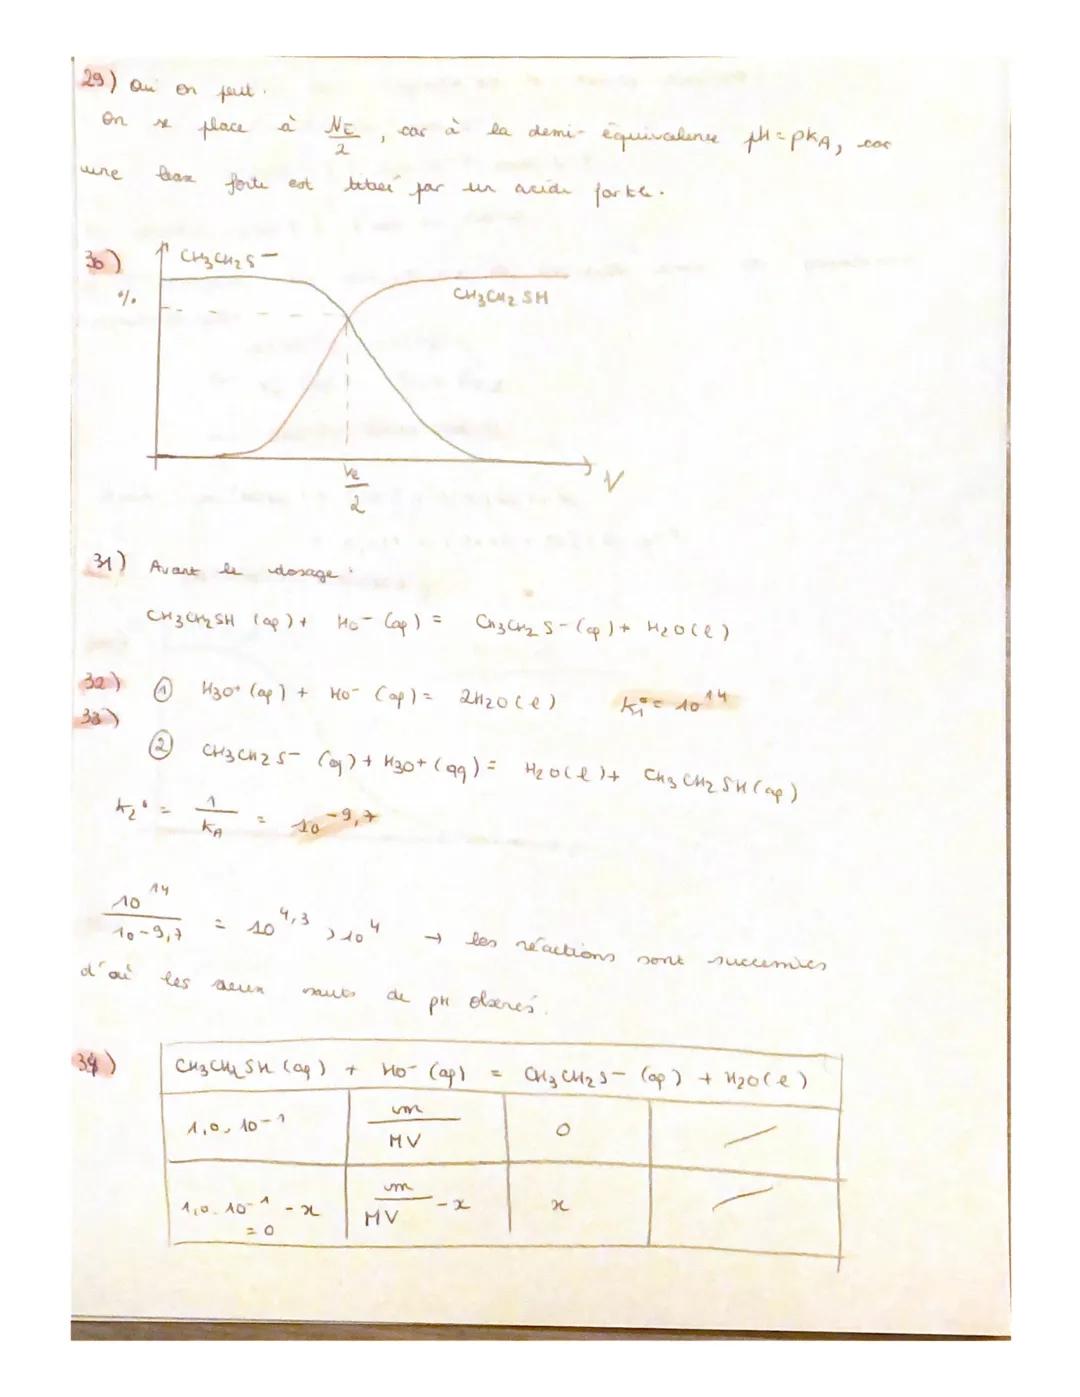 29) Oui on peut.
On se place à VE/2, car à la demi-équivalence pH = pKA, car
une base forte est titrée par un acide forte.
30)
CH3CH2S-
%
CH3CH2SH
Ve/2
V
31) Avant le dosage :
CH3CH2SH (aq) + HO- (aq) = CH3CH2S- (aq) + H2O(l)
32) ① H3O+ (aq) + HO- (aq) = 2H2O(l) K1° = 10^14
33)
② CH3CH2S- (aq) + H3O+ (aq) = H2O(l) + CH3CH2SH(aq)
K2° = 1/KA = 10^-9,7
10^14/10^-9,7 = 10^4,3 > 10^4 → les réactions sont successives
d'où les deux sauts de pH observés.
34)
CH3CH2SH (aq) + HO- (aq) = CH3CH2S- (aq) + H2O(l)
1,0.10^-1 m/MV 0
1,0.10^-1 - x m/MV - x x
= 0